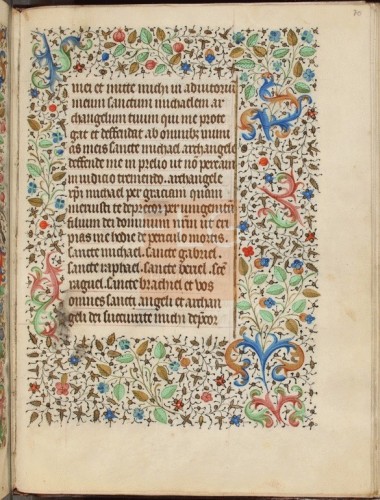 70
mei et mitte michi in adiutoriu
meum sanctum michaelem ar
changelum tuum qui me prote
gat et deffendat ab omnibus inimi
cis meis sancte michael archangele
deffende me in prelio ut no peream
in iudicio tremendo. archangele
xpi michael per graciam quam
meruisti te deprecor per unigenitu
filium dei dominum nrm ut eri
pias me hodie de periculo mortis.
Sancte michael. Sancte gabriel.
sancte raphael. Sancte uriel. sce
raguel. Sancte brachiel et vos
omnes sancti angeli et archan
geli dei succurrite michi deprecor